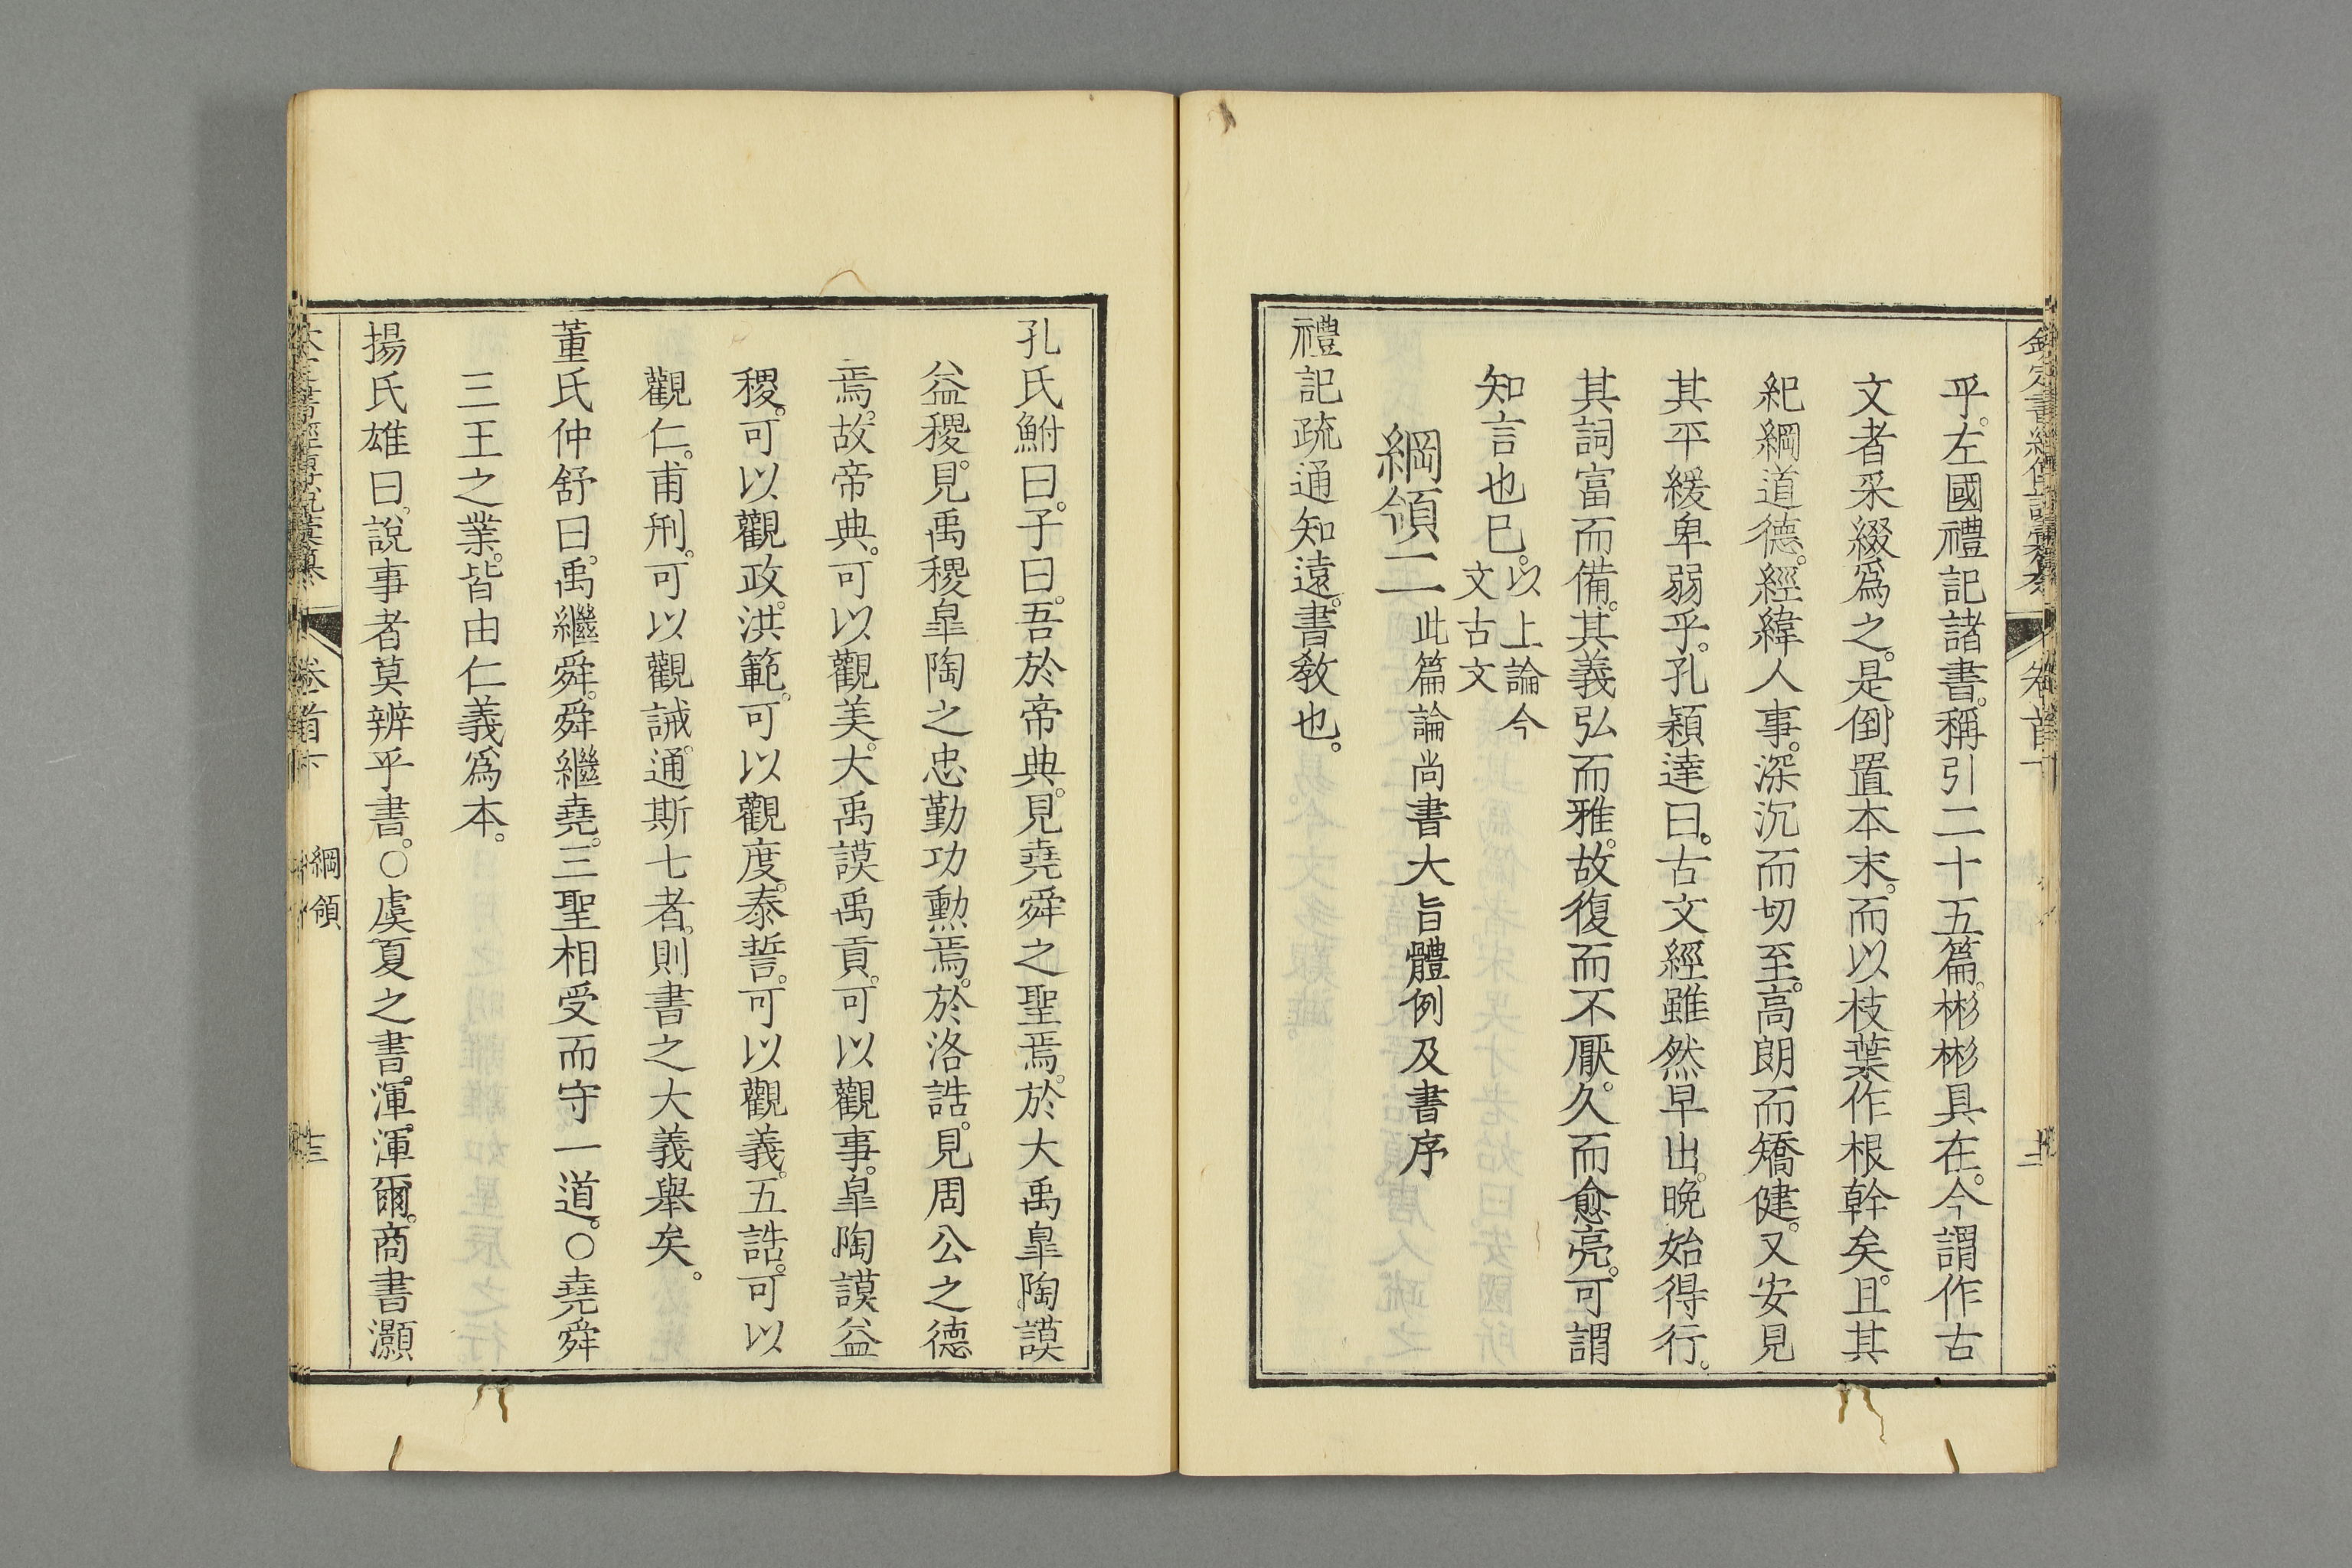 乎。左國禮記諸書。稱引二十五篇。彬彬具在。今謂作古
文者采綴爲之。是倒置本末。而以枝葉作根幹矣。且其
紀綱道德。經緯人事。深沉而切至。高朗而矯健。又安見
其平緩卑弱乎。孔穎達曰。古文經雖然早出。晚始得行。
其詞富而備。其義弘而雅。故復而不厭。久而愈亮。可謂
知言也已。以上論今
文古文
綱領二此篇論尚書大旨體例及書序
禮記疏通知遠。書教也。
孔氏鮒曰。子曰。吾於帝典。見堯舜之聖焉。於大禹皐陶謨
益稷。見禹稷皐陶之忠勤功勳焉。於洛誥。見周公之德
焉。故帝典。可以觀美。大禹謨禹貢。可以觀事。皐陶謨益
稷。可以觀政。洪範。可以觀度。泰誓。可以觀義。五誥。可以
觀仁。甫刑。可以觀誡。通斯七者。則書之大義舉矣。
董氏仲舒曰。禹繼舜。舜繼堯。三聖相受而守一道。○堯舜
三王之業。皆由仁義爲本。
揚氏雄曰。說事者莫辨乎書。○虞夏之書。渾渾爾。商書灝
卷首下
綱領